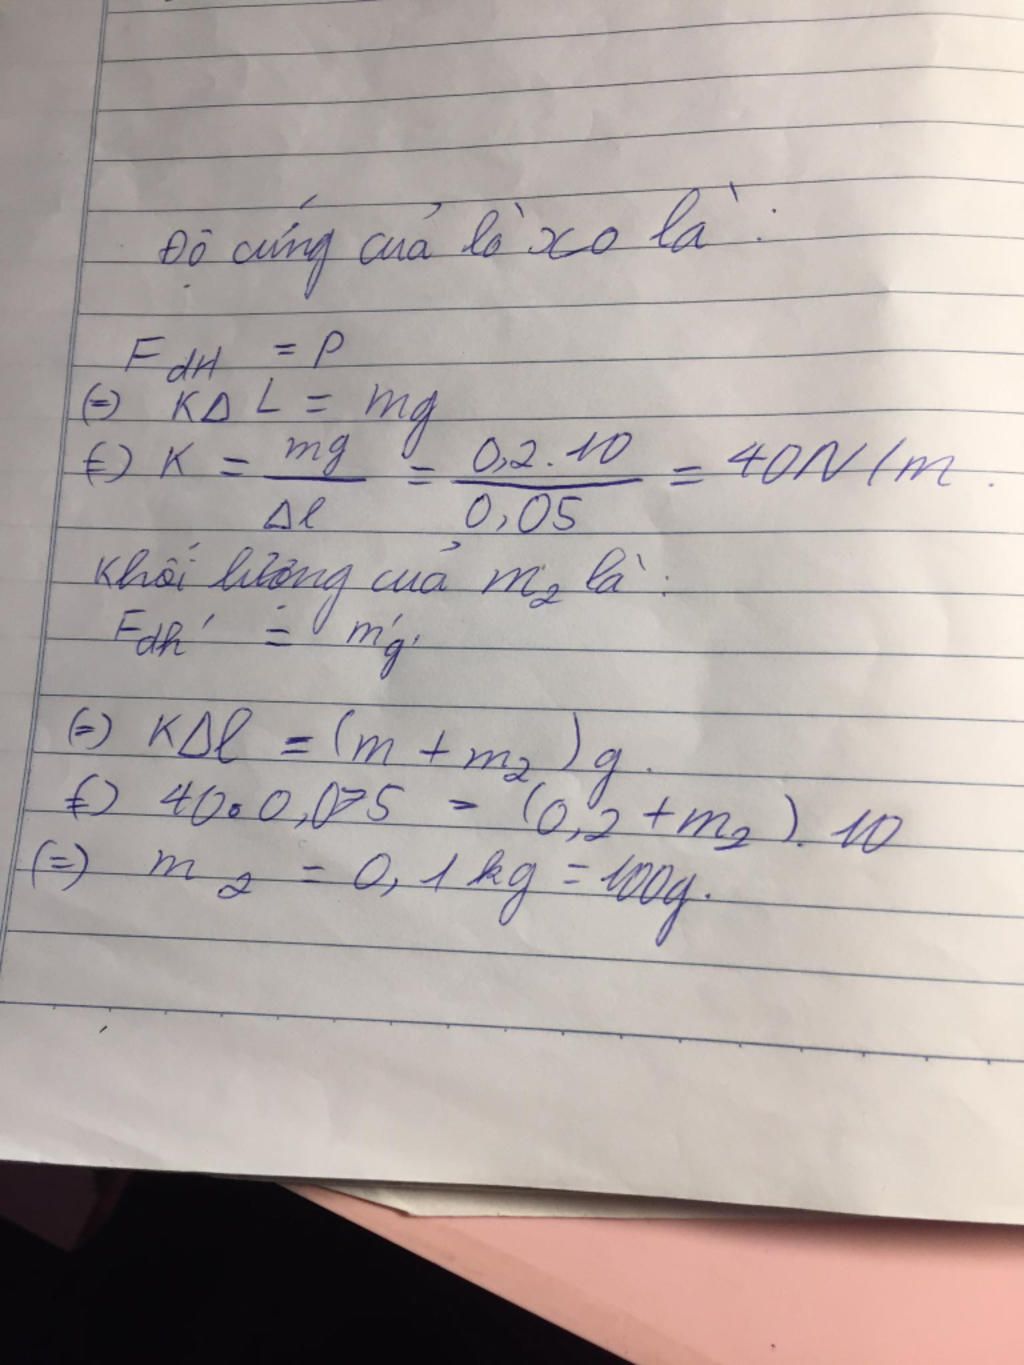 Độ cứng của lò xo là :
FdH = P
(=) KΔL = mg
(=) K = mg/Δl = 0,2.10/0,05 = 40N/m.
Khối lượng của m₂ là :
Fdh' = m'g'
(=) KΔl = (m + m₂)g.
(=) 40.0,075 = (0,2 + m₂).10
(=) m₂ = 0,1kg = 100g.